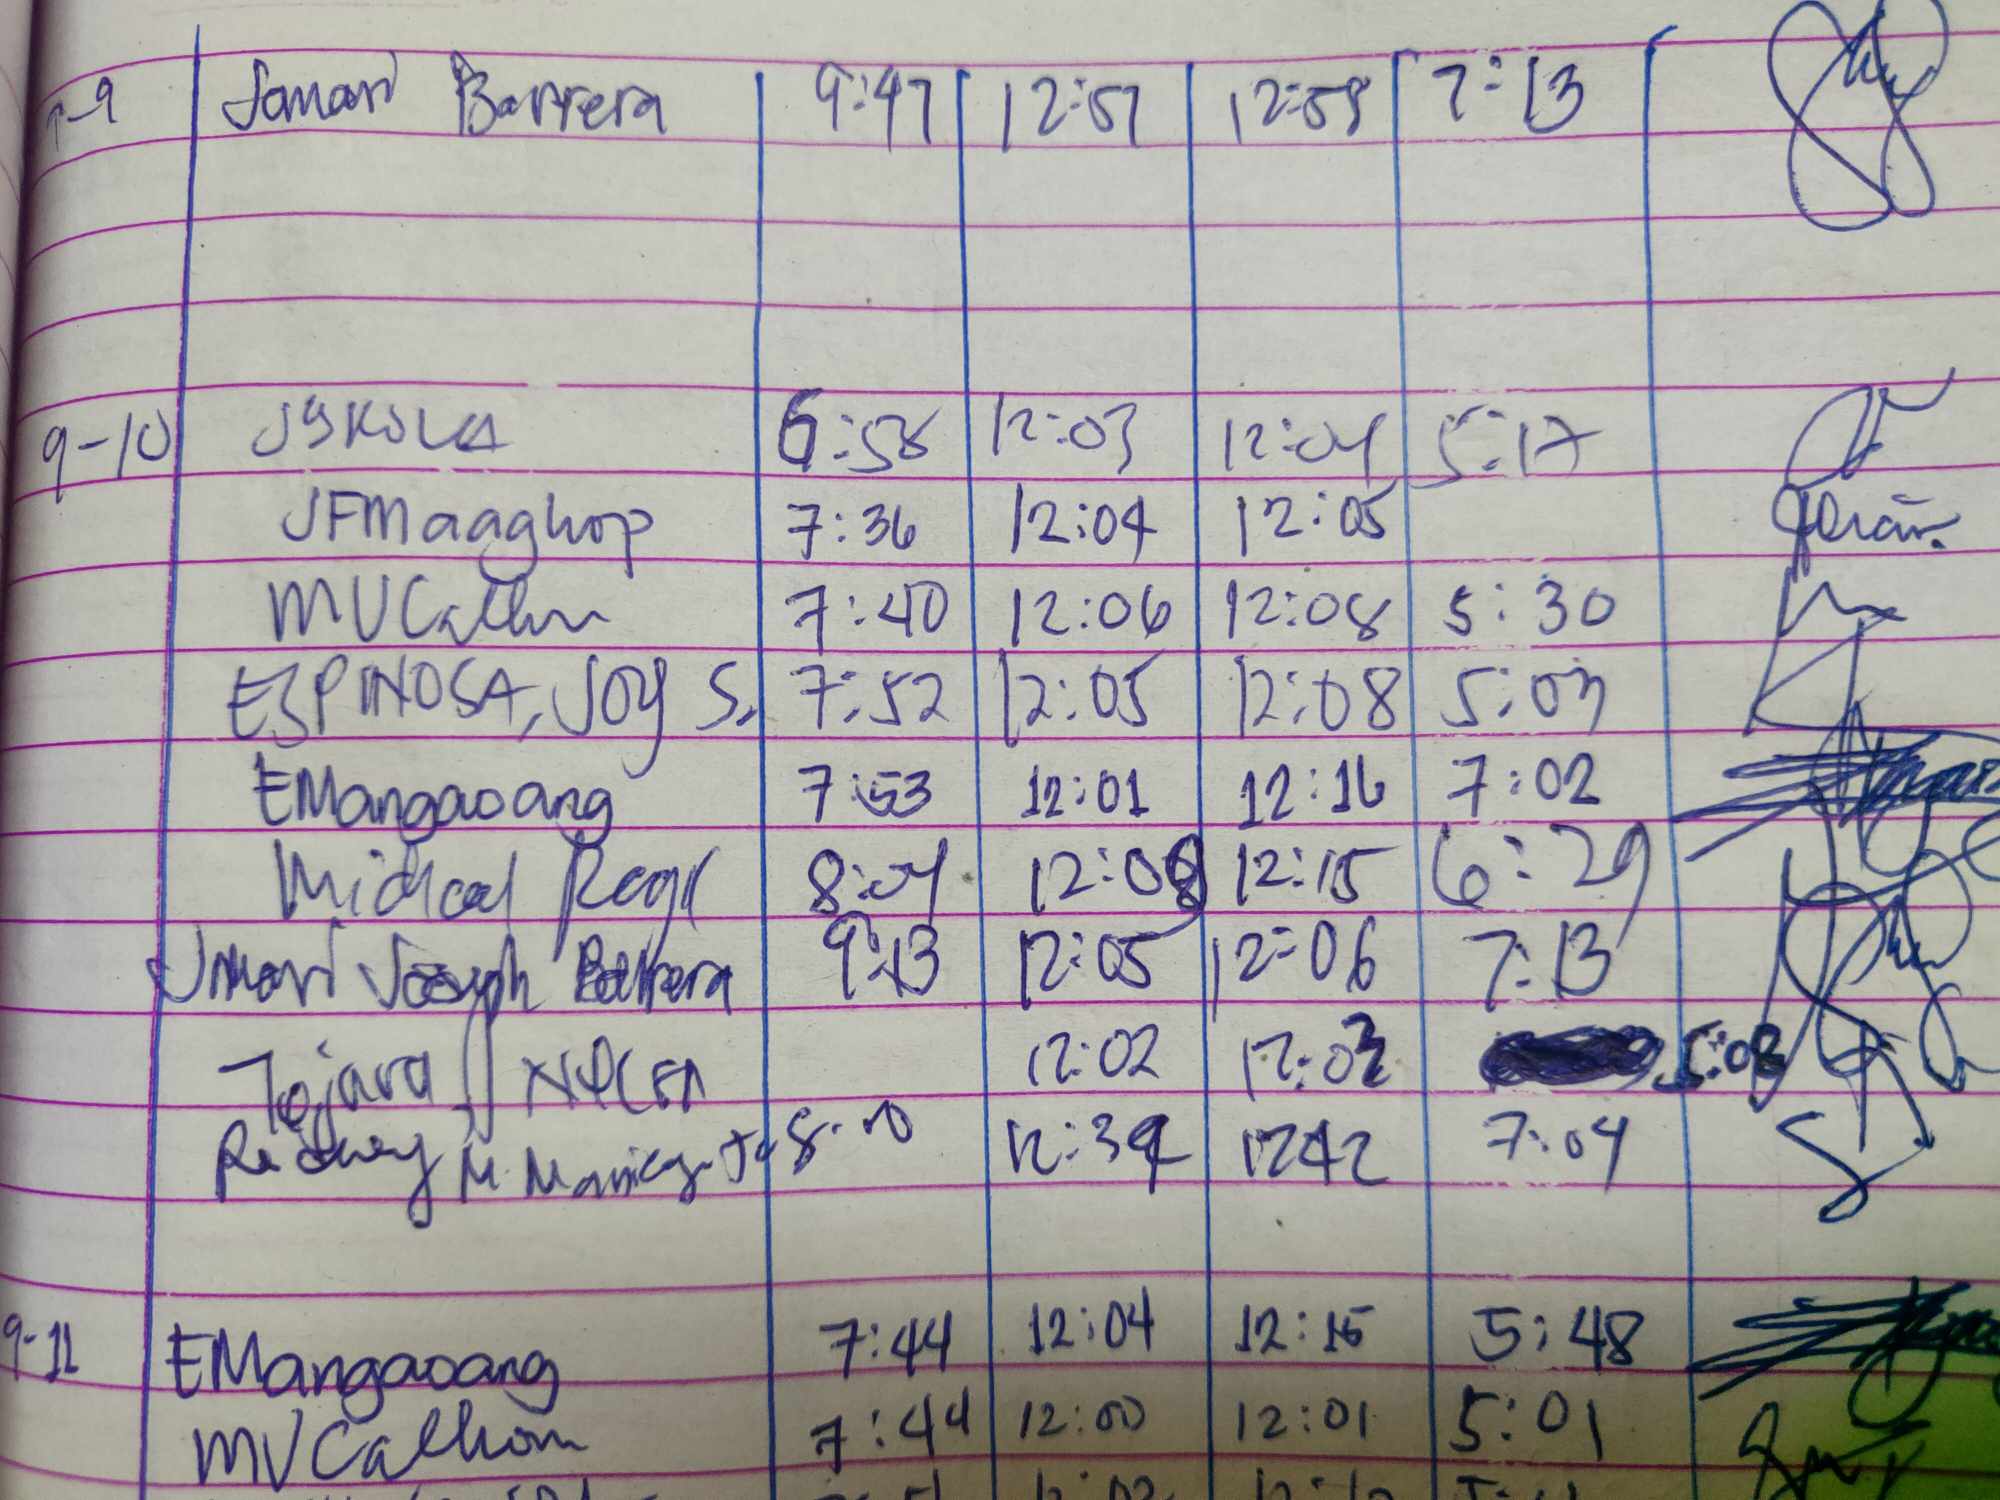 -9 Jamari Barrera 9:47 12:57 12:58 7:13
9-10 6:58 12:03 12:04 5:17
JFMaaghop 7:36 12:04 12:05
MVCalhom 7:40 12:06 12:08 5:30
ESPINOSA, JOY S. 7:52 12:05 12:08 5:03
EMangaoang 7:53 12:01 12:16 7:02
Micheal 8:04 12:08 12:15 6:29
Jamari Joseph Barrera 9:13 12:05 12:06 7:13
Tajara 12:02 12:03 5:08
Rodney M. 8:00 12:39 1242 7:04
9-11 EMangaoang 7:44 12:04 12:15 5:48
MVCalhom 7:44 12:00 12:01 5:01